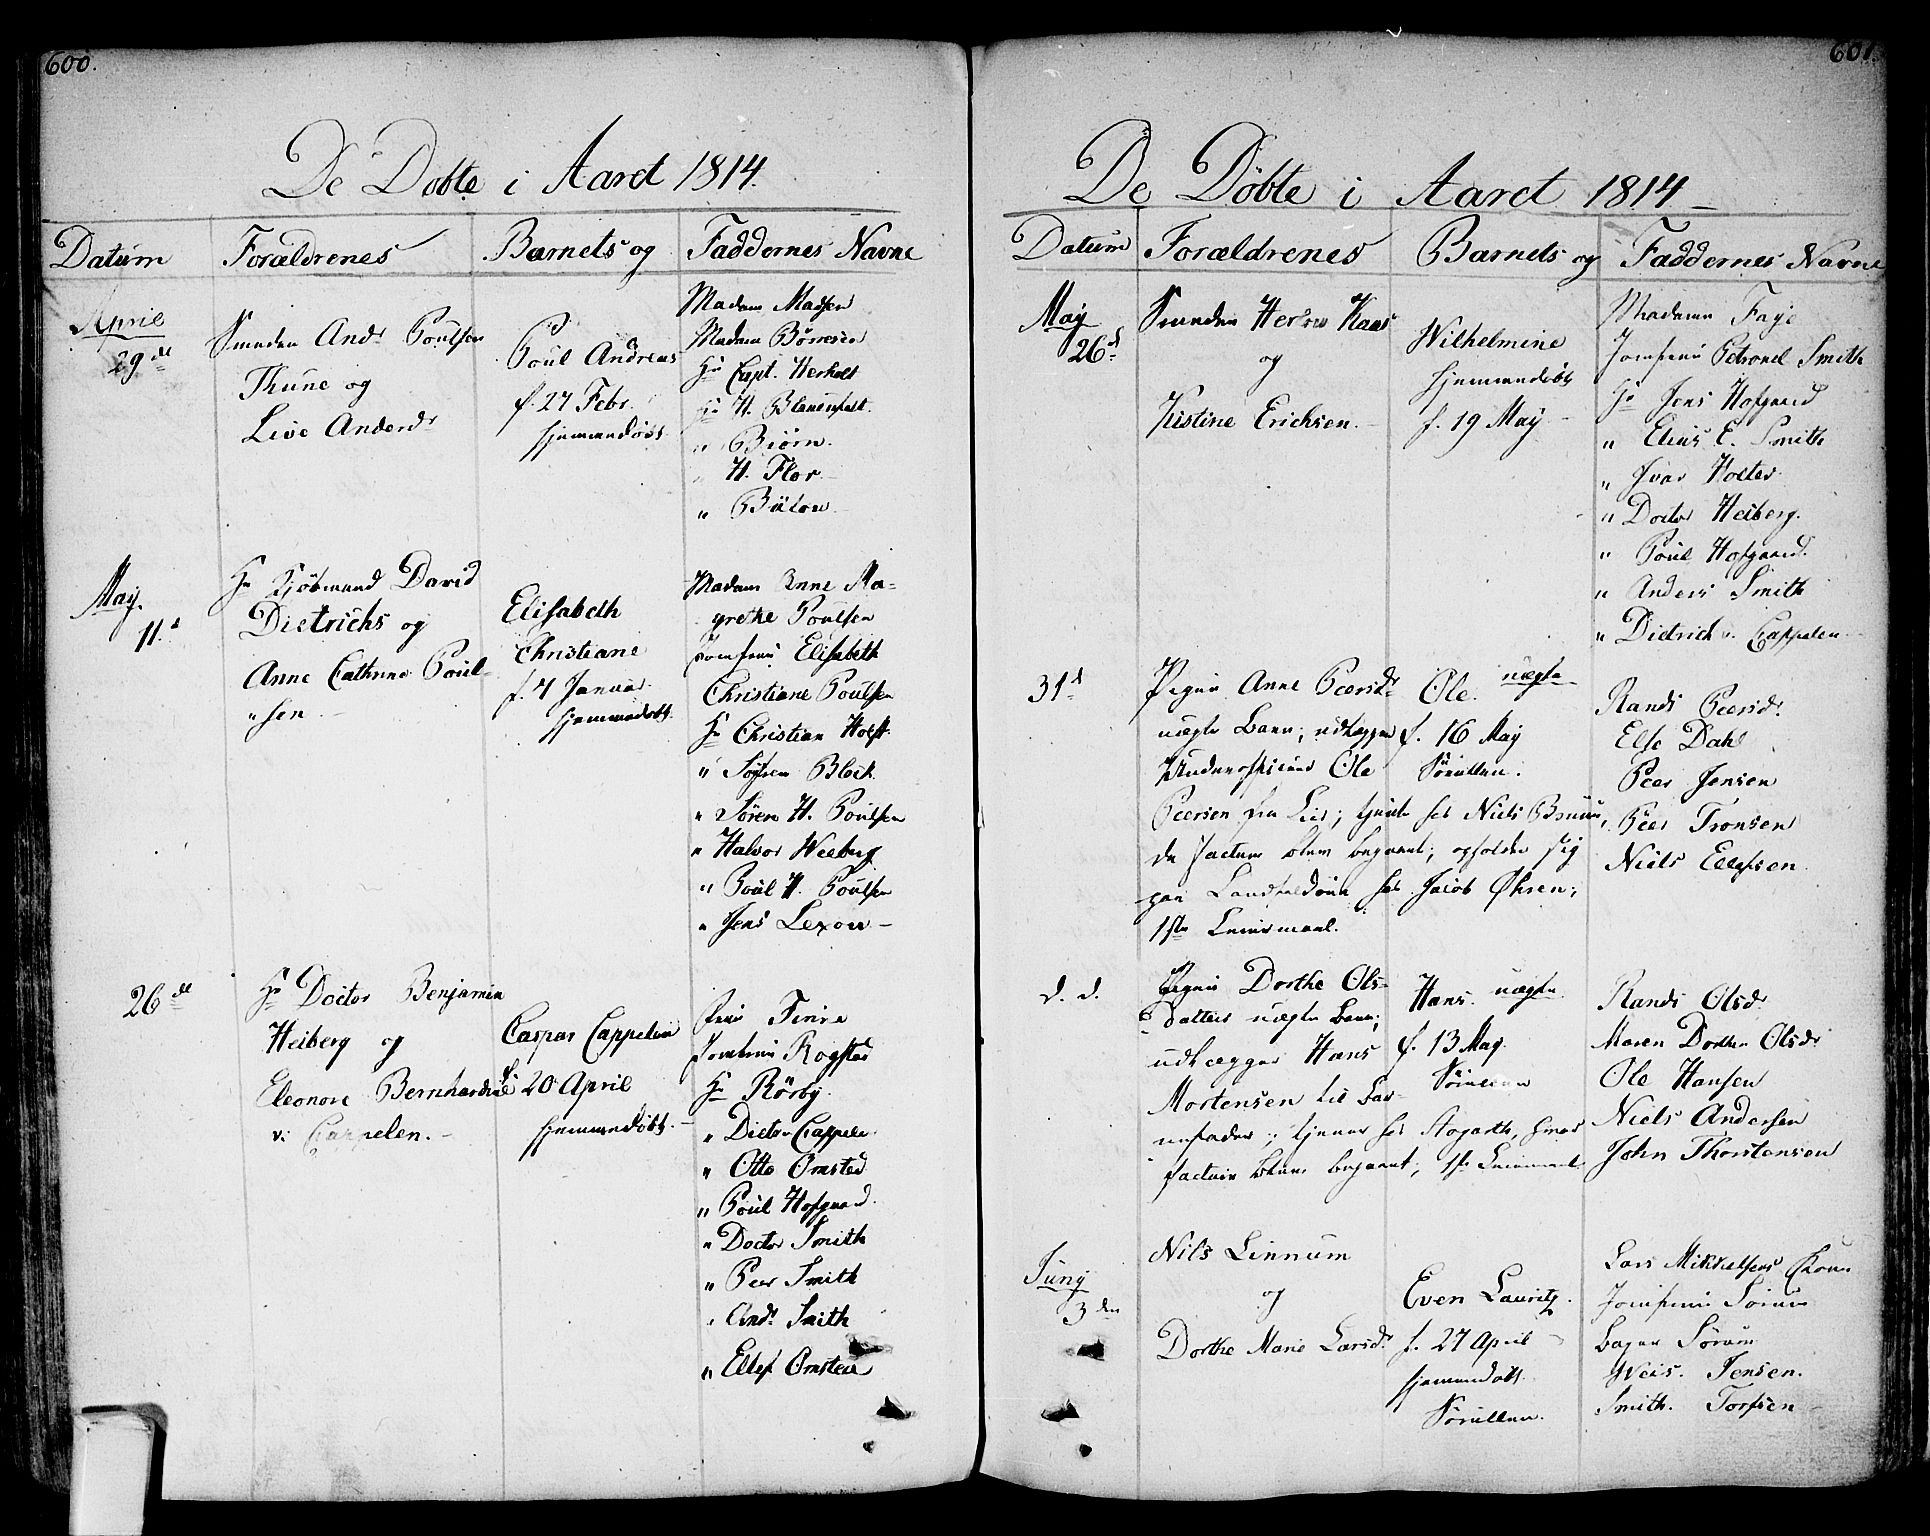 600.
De Döbte i Aaret 1814.
Datum Forældrenes Barnets og Faddernes Navne
April
29de
Smeden Andr Poulsen
Thune og
Live Andersdr
Poul Andreas
f. 27 Febr.
hjemmedøbt
Madam Madsen
Madam Börresen
Hr Capt. Herholt
Hr H. Blauenfelt.
" Biörn.
" H. Flor
" Bülow
May.
11.d
Hr Kjöbmand David
Dietrichs og
Anne Cathrine Poul-
sen
Elisabeth
Christiane
f. 4 Januar.
hjemmedøbt.
Madam Anne Ma-
grethe Poulsen
Jomfrue Elisabeth
Christiane Poulsen
Hr Christian Holst
" Block
" Sören H. Poulsen
" Halvor Weeberg
" Poul H. Poulsen
" Jens Lexow
26de
Hr Doctor Benjamin
Heiberg og
Eleonore Bernhardine
v. Cappelen.
Caspar Cappelen
f. 20 April
hjemmedøbt.
Frue Finne
Jomfrue Rogstad
Hr Rörby
" Dietr. Cappelen
" Otto Omsted
" Poul Hofgaard
" Doctor Smith
" Peer Smith
" Andr Smith
" Ellef Omsted
601.
De Döbte i Aaret 1814
Datum Forældrenes Barnets og Faddernes Navne
May
26d
Smeden Kaas
og
Kistine Erichsen.
Wilhelmine
hjemmedøbt
f. 19 May
Madame Faye
Jomfrue Petronel Smith
Hr Jens Hofgaard
" Elias E. Smith
" Ivar Holter
" Doctor Heiberg.
" Poul Hofgaard.
" Anders Smith
" Dietrich v. Cappelen
31d
Pigen Anne Peersdr
uægte Barn; udlægger
Underofficeer Ole
Peersen fra Lier; tjente hos Niels Bruun,
da factum blev begaaet; opholder sig
paa Landfaldöen hos Jacob Öhren;
1ste Leiermaal.
Ole. uægte
f. 16 May
Randi Peersdr.
Else Dahl
Peer Jensen
Peer Tronsen
Niels Ellefsen
d. d.
Pigen Dorthe Ols-
datters uægte Barn;
udlægger Hans
Mortensen til Bar-
nefader; tjener hos Aagaard, hvor
factum blev begaaet; 1ste Leiermaal
Hans. uægte
f. 13 May.
Randi Olsdr
Maren Dorthe Olsdr
Ole Hansen
Niels Andersen
John Thorstensen
Juny
3den
Nils Linnum
og
Dorthe Marie Larsdr.
Even Lauritz.
f. 27 April
hjemmedøbt
Lars Mikkelsens Kone
Jomfrue Sörum
Bager Sörum
Jensen.
Smith. Torfsen